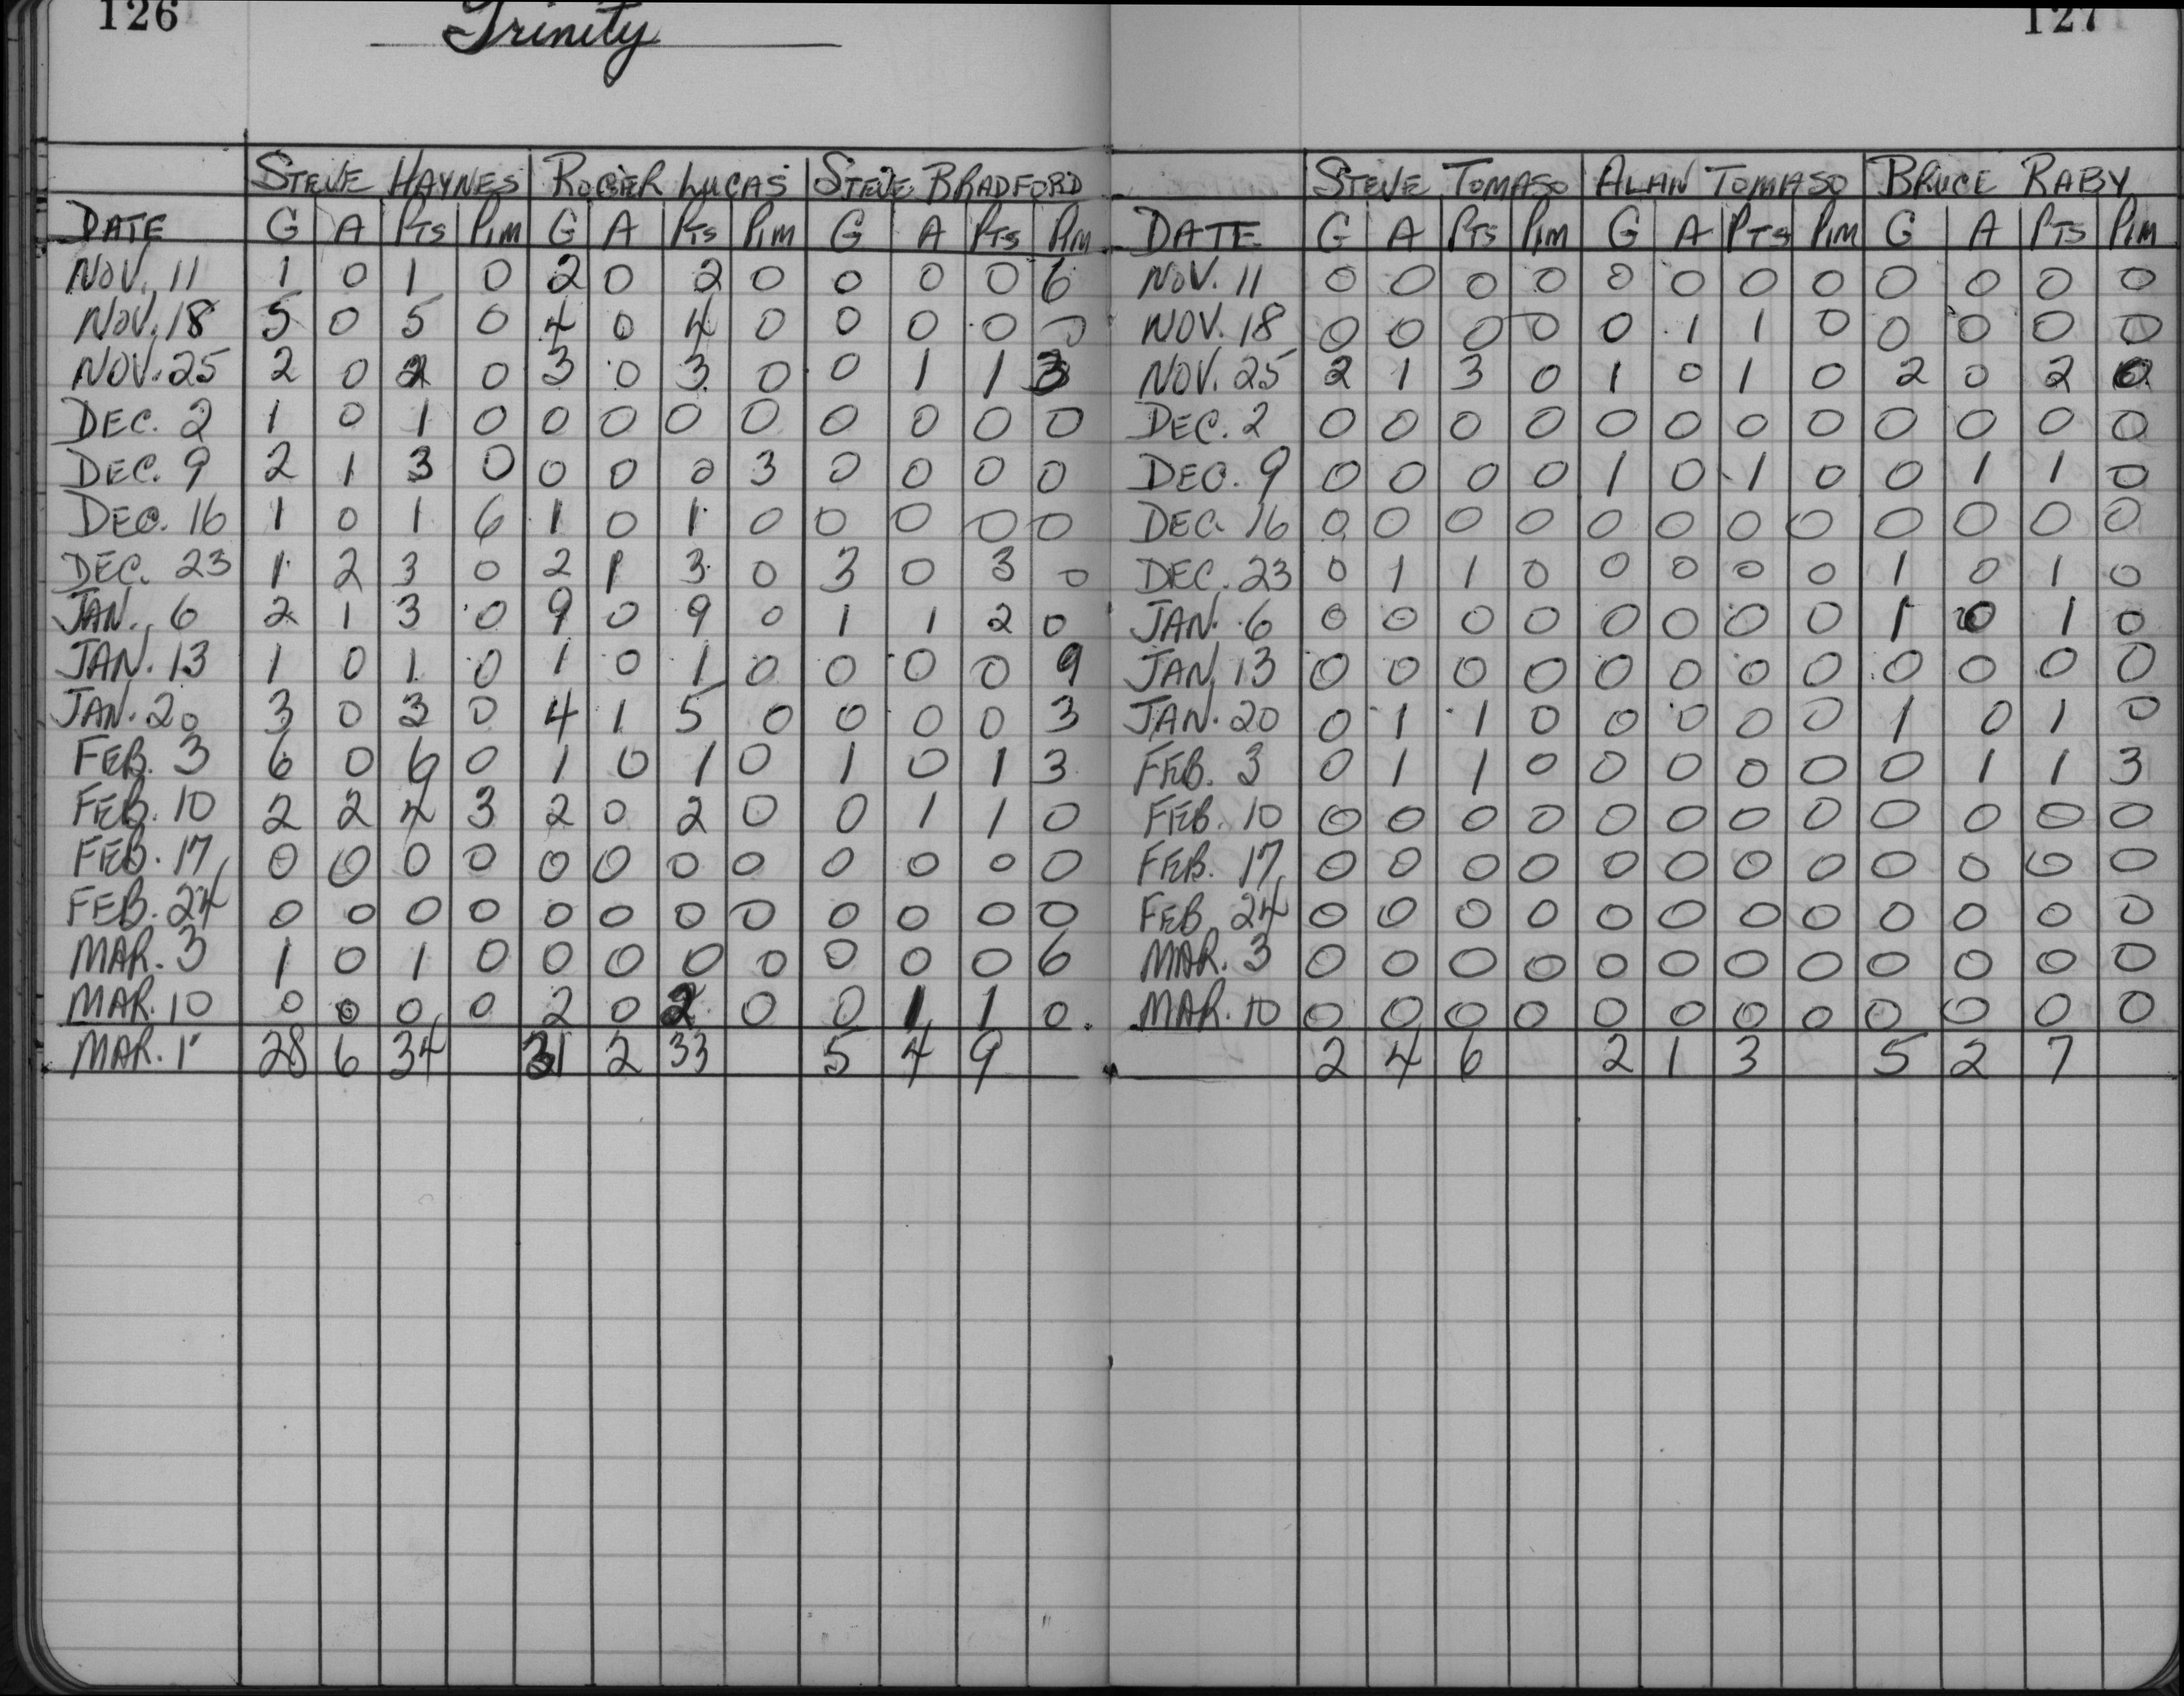 126
Trinity
STEVE HAYNES ROGER LUCAS STEVE BRADFORD
DATE G A PTS PIM G A PTS PIM G A PTS PIM
NOV. 11 1 0 1 0 2 0 2 0 0 0 0 6
NOV. 18 5 0 5 0 4 0 4 0 0 0 0 0
NOV. 25 2 0 2 0 3 0 3 0 0 1 1 3
DEC. 2 1 0 1 0 0 0 0 0 0 0 0 0
DEC. 9 2 1 3 0 0 0 0 3 0 0 0 0
DEC. 16 1 0 1 6 1 0 1 0 0 0 0 0
DEC. 23 1 2 3 0 2 1 3 0 3 0 3 0
JAN. 6 2 1 3 0 9 0 9 0 1 1 2 0
JAN. 13 1 0 1 0 1 0 1 0 0 0 0 9
JAN. 20 3 0 3 0 4 1 5 0 0 0 0 3
FEB. 3 6 0 6 0 1 0 1 0 1 0 1 3
FEB. 10 2 2 4 3 2 0 2 0 0 1 1 0
FEB. 17 0 0 0 0 0 0 0 0 0 0 0 0
FEB. 24 0 0 0 0 0 0 0 0 0 0 0 0
MAR. 3 1 0 1 0 0 0 0 0 0 0 0 6
MAR. 10 0 0 0 0 2 0 2 0 0 1 1 0
MAR. 1 28 6 34 31 2 33 5 4 9
127
STEVE TOMASO ALAN TOMASO BRUCE RABY
DATE G A PTS PIM G A PTS PIM G A PTS PIM
NOV. 11 0 0 0 0 0 0 0 0 0 0 0 0
NOV. 18 0 0 0 0 0 1 1 0 0 0 0 0
NOV. 25 2 1 3 0 1 0 1 0 2 0 2 0
DEC. 2 0 0 0 0 0 0 0 0 0 0 0 0
DEC. 9 0 0 0 0 1 0 1 0 0 1 1 0
DEC. 16 0 0 0 0 0 0 0 0 0 0 0 0
DEC. 23 0 1 1 0 0 0 0 0 1 0 1 0
JAN. 6 0 0 0 0 0 0 0 0 1 0 1 0
JAN. 13 0 0 0 0 0 0 0 0 0 0 0 0
JAN. 20 0 1 1 0 0 0 0 0 1 0 1 0
FEB. 3 0 1 1 0 0 0 0 0 0 1 1 3
FEB. 10 0 0 0 0 0 0 0 0 0 0 0 0
FEB. 17 0 0 0 0 0 0 0 0 0 0 0 0
FEB. 24 0 0 0 0 0 0 0 0 0 0 0 0
MAR. 3 0 0 0 0 0 0 0 0 0 0 0 0
MAR. 10 0 0 0 0 0 0 0 0 0 0 0 0
2 4 6 2 1 3 5 2 7